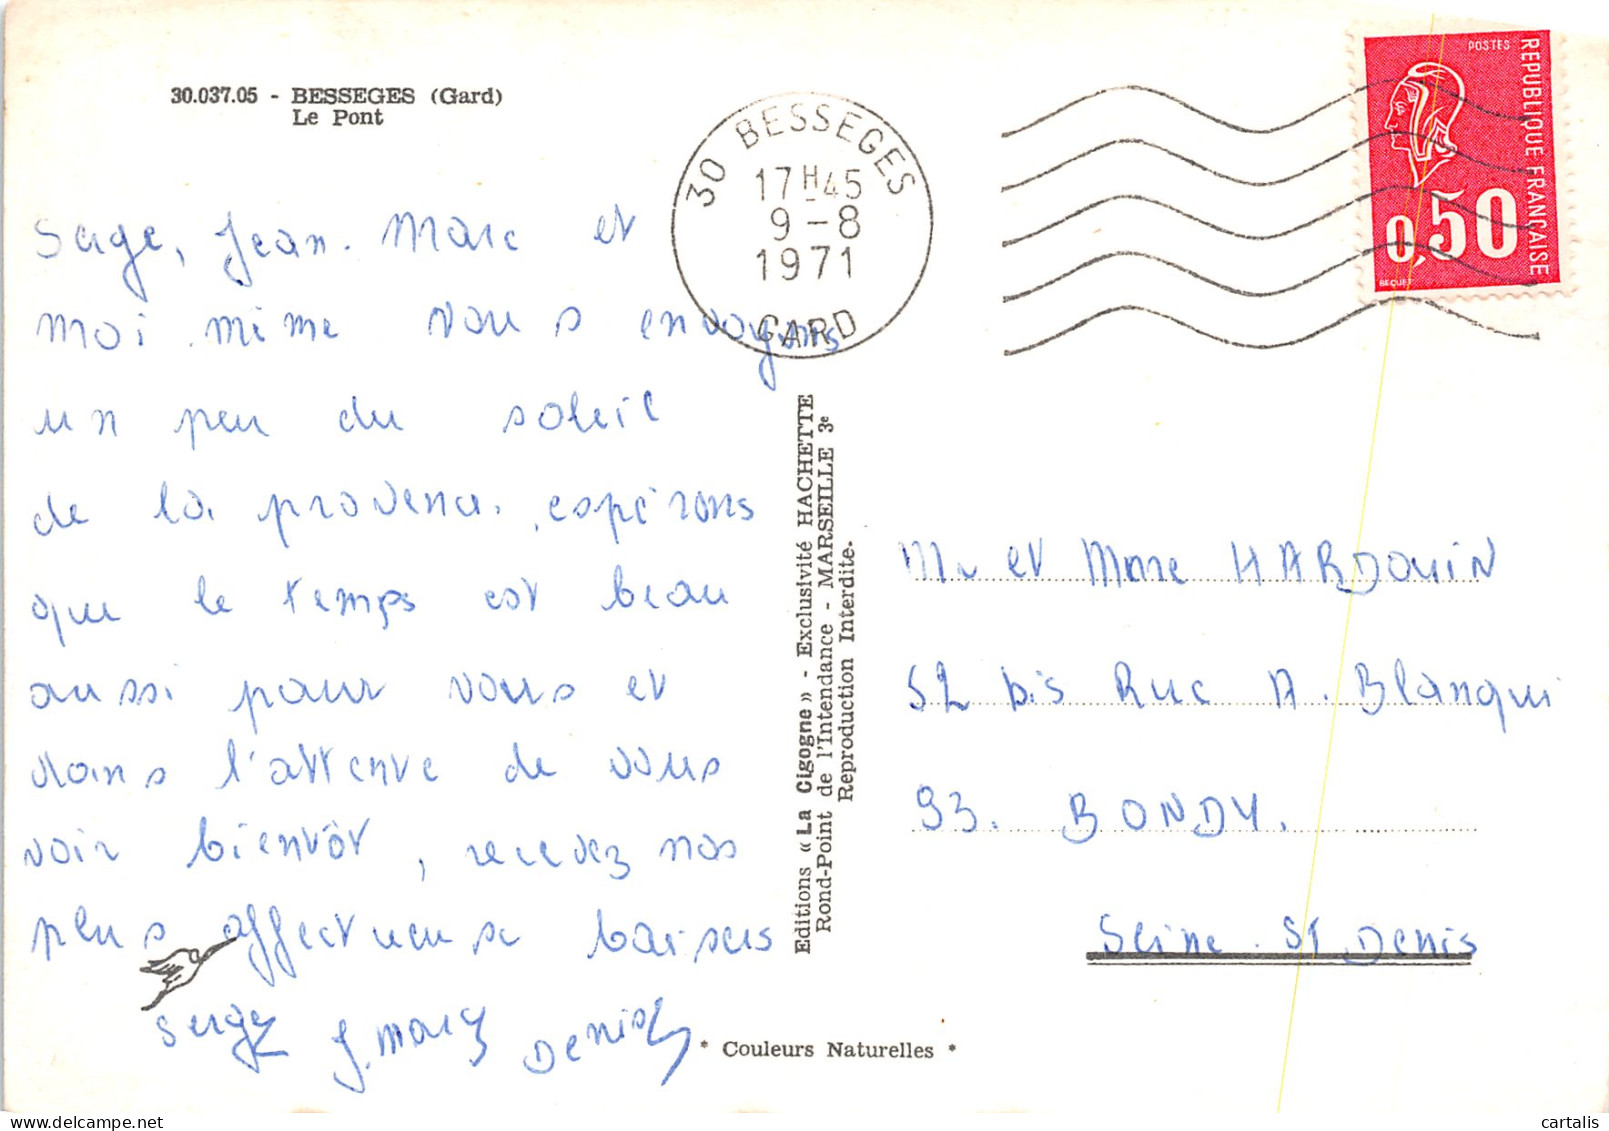 30.037.05 - BESSEGES (Gard)
Le Pont
30 BESSEGES
17H45
9-8
1971
GARD
POSTES
REPUBLIQUE FRANÇAISE
0,50
BEQUET
Serge, Jean-Marc et
moi même vous envoyons
un peu du soleil
de la provence. espérons
que le temps est beau
aussi pour vous et
dans l'attente de vous
voir bientôt, recevez nos
plus affectueuse baisers
Serge J. Marc Denis
Editions « La Cigogne » - Exclusivité HACHETTE
Rond-Point de l'Intendance - MARSEILLE 3e
Reproduction Interdite.
Mr et Mme HARDOUIN
52 bis Rue A. Blanqui
93. BONDY.
Seine. St Denis
* Couleurs Naturelles *
cartalis